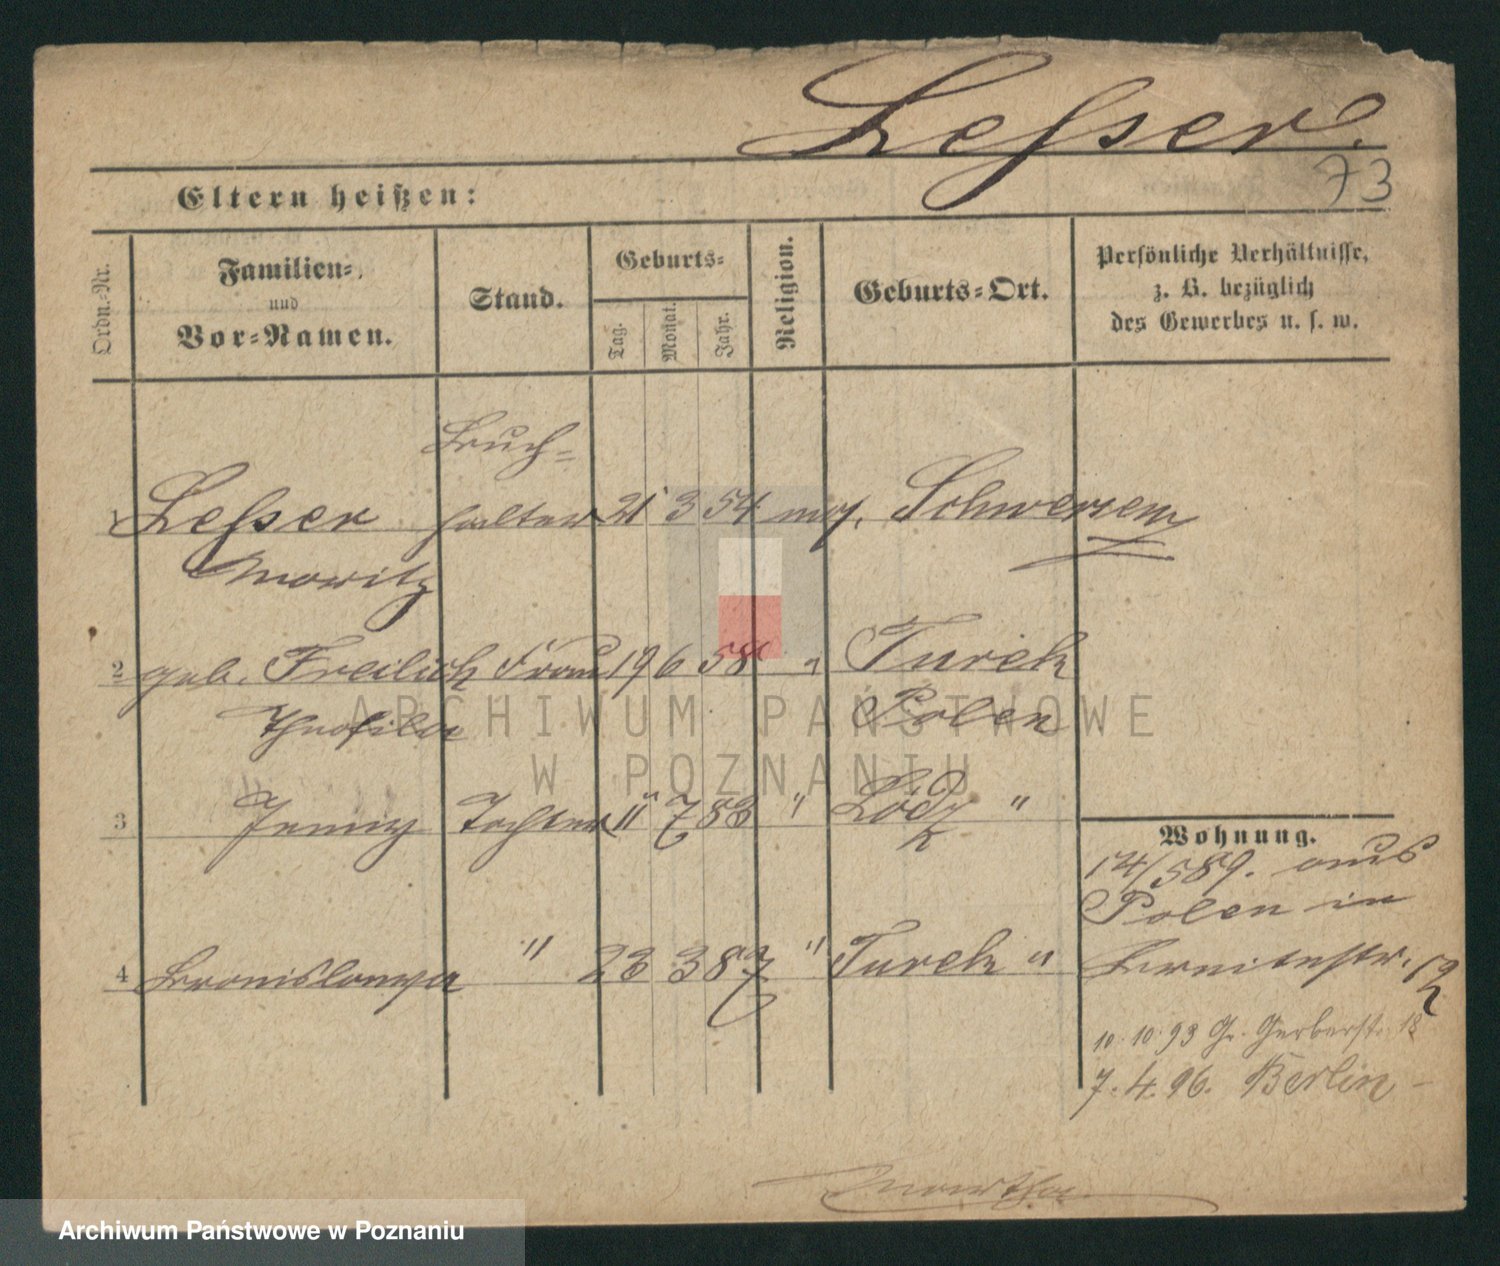 Lesser.
73
Eltern heißen:
Ordn.-Nr.
Familien-
und
Vor-Namen.
Stand.
Geburts-
Tag.
Monat.
Jahr.
Religion.
Geburts-Ort.
Persönliche Verhältnisse,
z. B. bezüglich
des Gewerbes u. s. w.
Buch-
1 Lesser halter 21 3 54 mos. Schwersenz
Moritz
2 geb. Freilich Frau 19 6 58 " Turek
Theofila Polen
3 Jenny Tochter 11 7 83 " Lodz "
4 Bronislawa " 23 3 87 " Turek "
Wohnung.
14/589. aus
Polen in
Breitestr. 12
10. 10. 93 Gr. Gerberstr. 18
7. 4. 96. Berlin -
ARCHIWUM PAŃSTWOWE
W POZNANIU
Archiwum Państwowe w Poznaniu